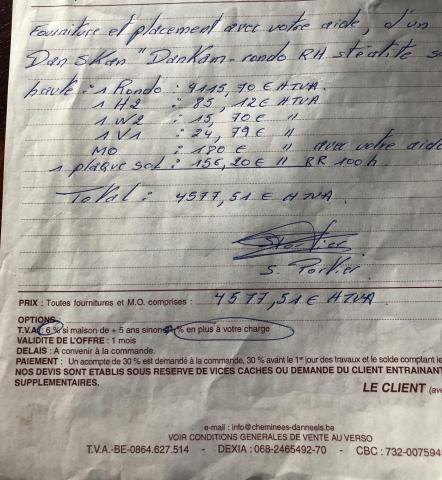 Fourniture et placement avec votre aide, d'un
Dan Skan "Dankam-rondo RH stéatite
haute : 1 Rondo : 4115,70 € HTVA.
1 H2 : 85,12 € HTVA
1 W2 : 15,70 € "
1 V1 : 24,79 € "
MO : 180 € " avec votre aide
1 plaque sol : 156,20 € " BR 100 h
Total : 4577,51 € HTVA.
S. Portier
PRIX : Toutes fournitures et M.O. comprises : 4577,51 € HTVA
OPTIONS
T.V.A : 6 % si maison de + 5 ans sinon % en plus à votre charge
VALIDITE DE L'OFFRE : 1 mois
DELAIS : A convenir à la commande.
PAIEMENT : Un acompte de 30 % est demandé à la commande, 30 % avant le 1er jour des travaux et le solde comptant le
NOS DEVIS SONT ETABLIS SOUS RESERVE DE VICES CACHES OU DEMANDE DU CLIENT ENTRAINANT
SUPPLEMENTAIRES.
LE CLIENT (ave
e-mail : info@cheminees-danneels.be
VOIR CONDITIONS GENERALES DE VENTE AU VERSO
T.V.A.-BE-0864.627.514 - DEXIA : 068-2465492-70 - CBC : 732-0075949